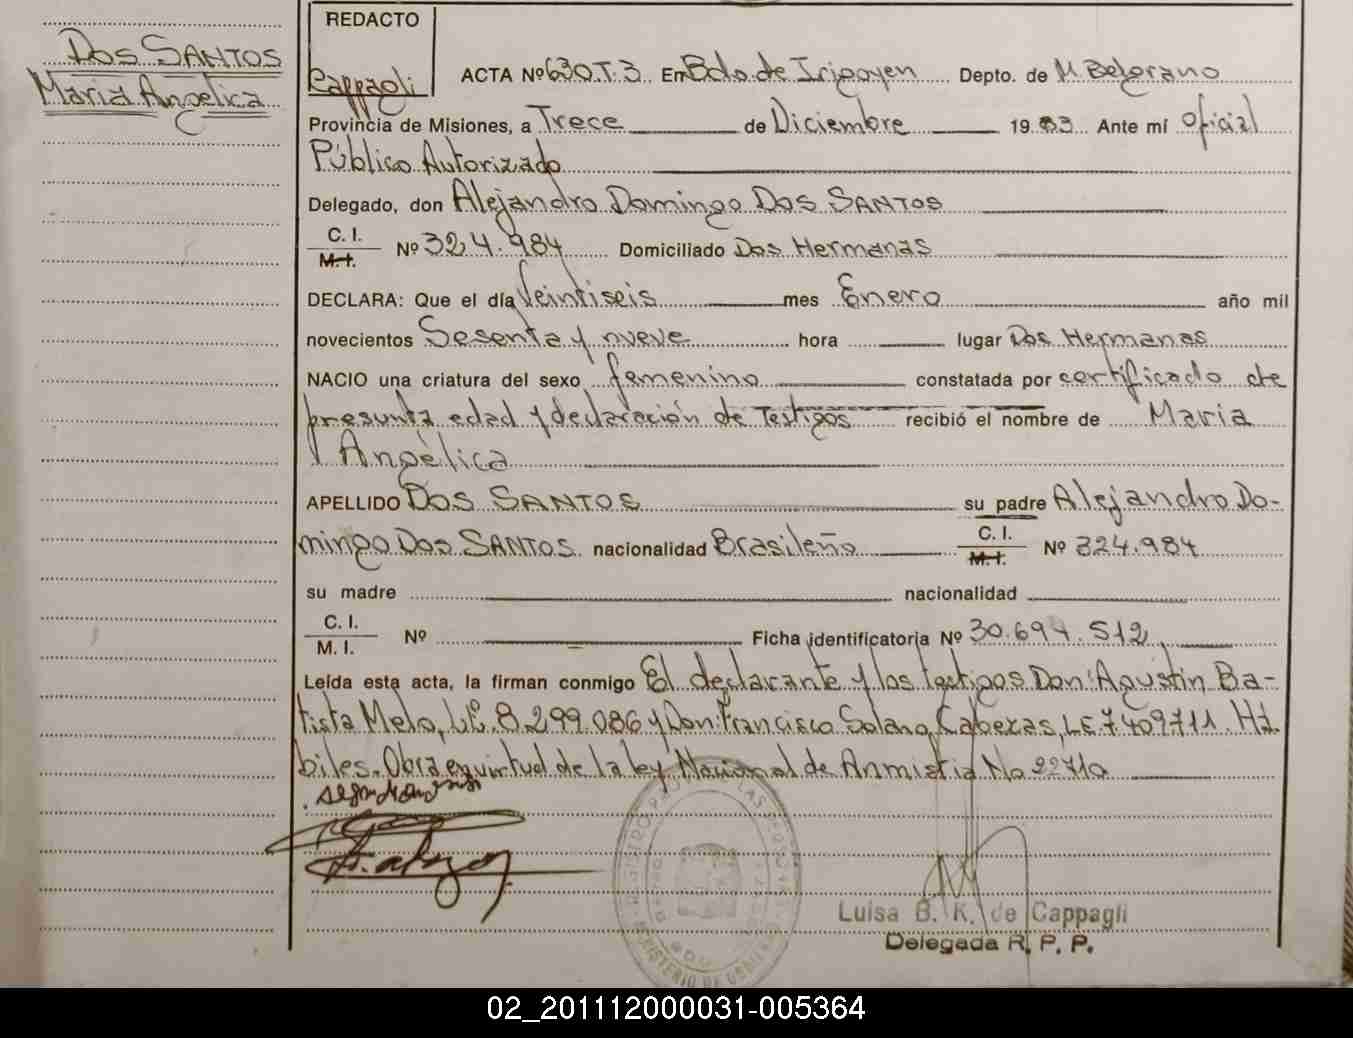 DOS SANTOS
Maria Angelica
REDACTO
Cappagli
ACTA Nº 630.T.3 En Bdo de Irigoyen Depto. de M. Belgrano
Provincia de Misiones, a Trece de Diciembre 1983 Ante mí Oficial
Público Autorizado
Delegado, don Alejandro Domingo DOS SANTOS
C. I.
M. I.
Nº 324.984 Domiciliado Dos Hermanas
DECLARA: Que el día Veintiseis mes Enero año mil
novecientos Sesenta y nueve hora lugar Dos Hermanas
NACIO una criatura del sexo femenino constatada por certificado de
presunta edad y declaración de Testigos recibió el nombre de Maria
Angélica
APELLIDO DOS SANTOS su padre Alejandro Do-
mingo Dos SANTOS nacionalidad Brasileño
C. I.
M. I.
Nº 324.984
su madre nacionalidad
C. I.
M. I.
Nº Ficha identificatoria Nº 30.694.512
Leída esta acta, la firman conmigo El declarante y los testigos Don: Agustin Ba-
tista Melo, LE. 8.299.086 y Don: Francisco Solano Cabezas, LE 7.409.711. Há-
biles. Obra en virtud de la ley Nacional de Anmistia No 22710
Luisa B. K. de Cappagli
Delegada R. P. P.
02_201112000031-005364